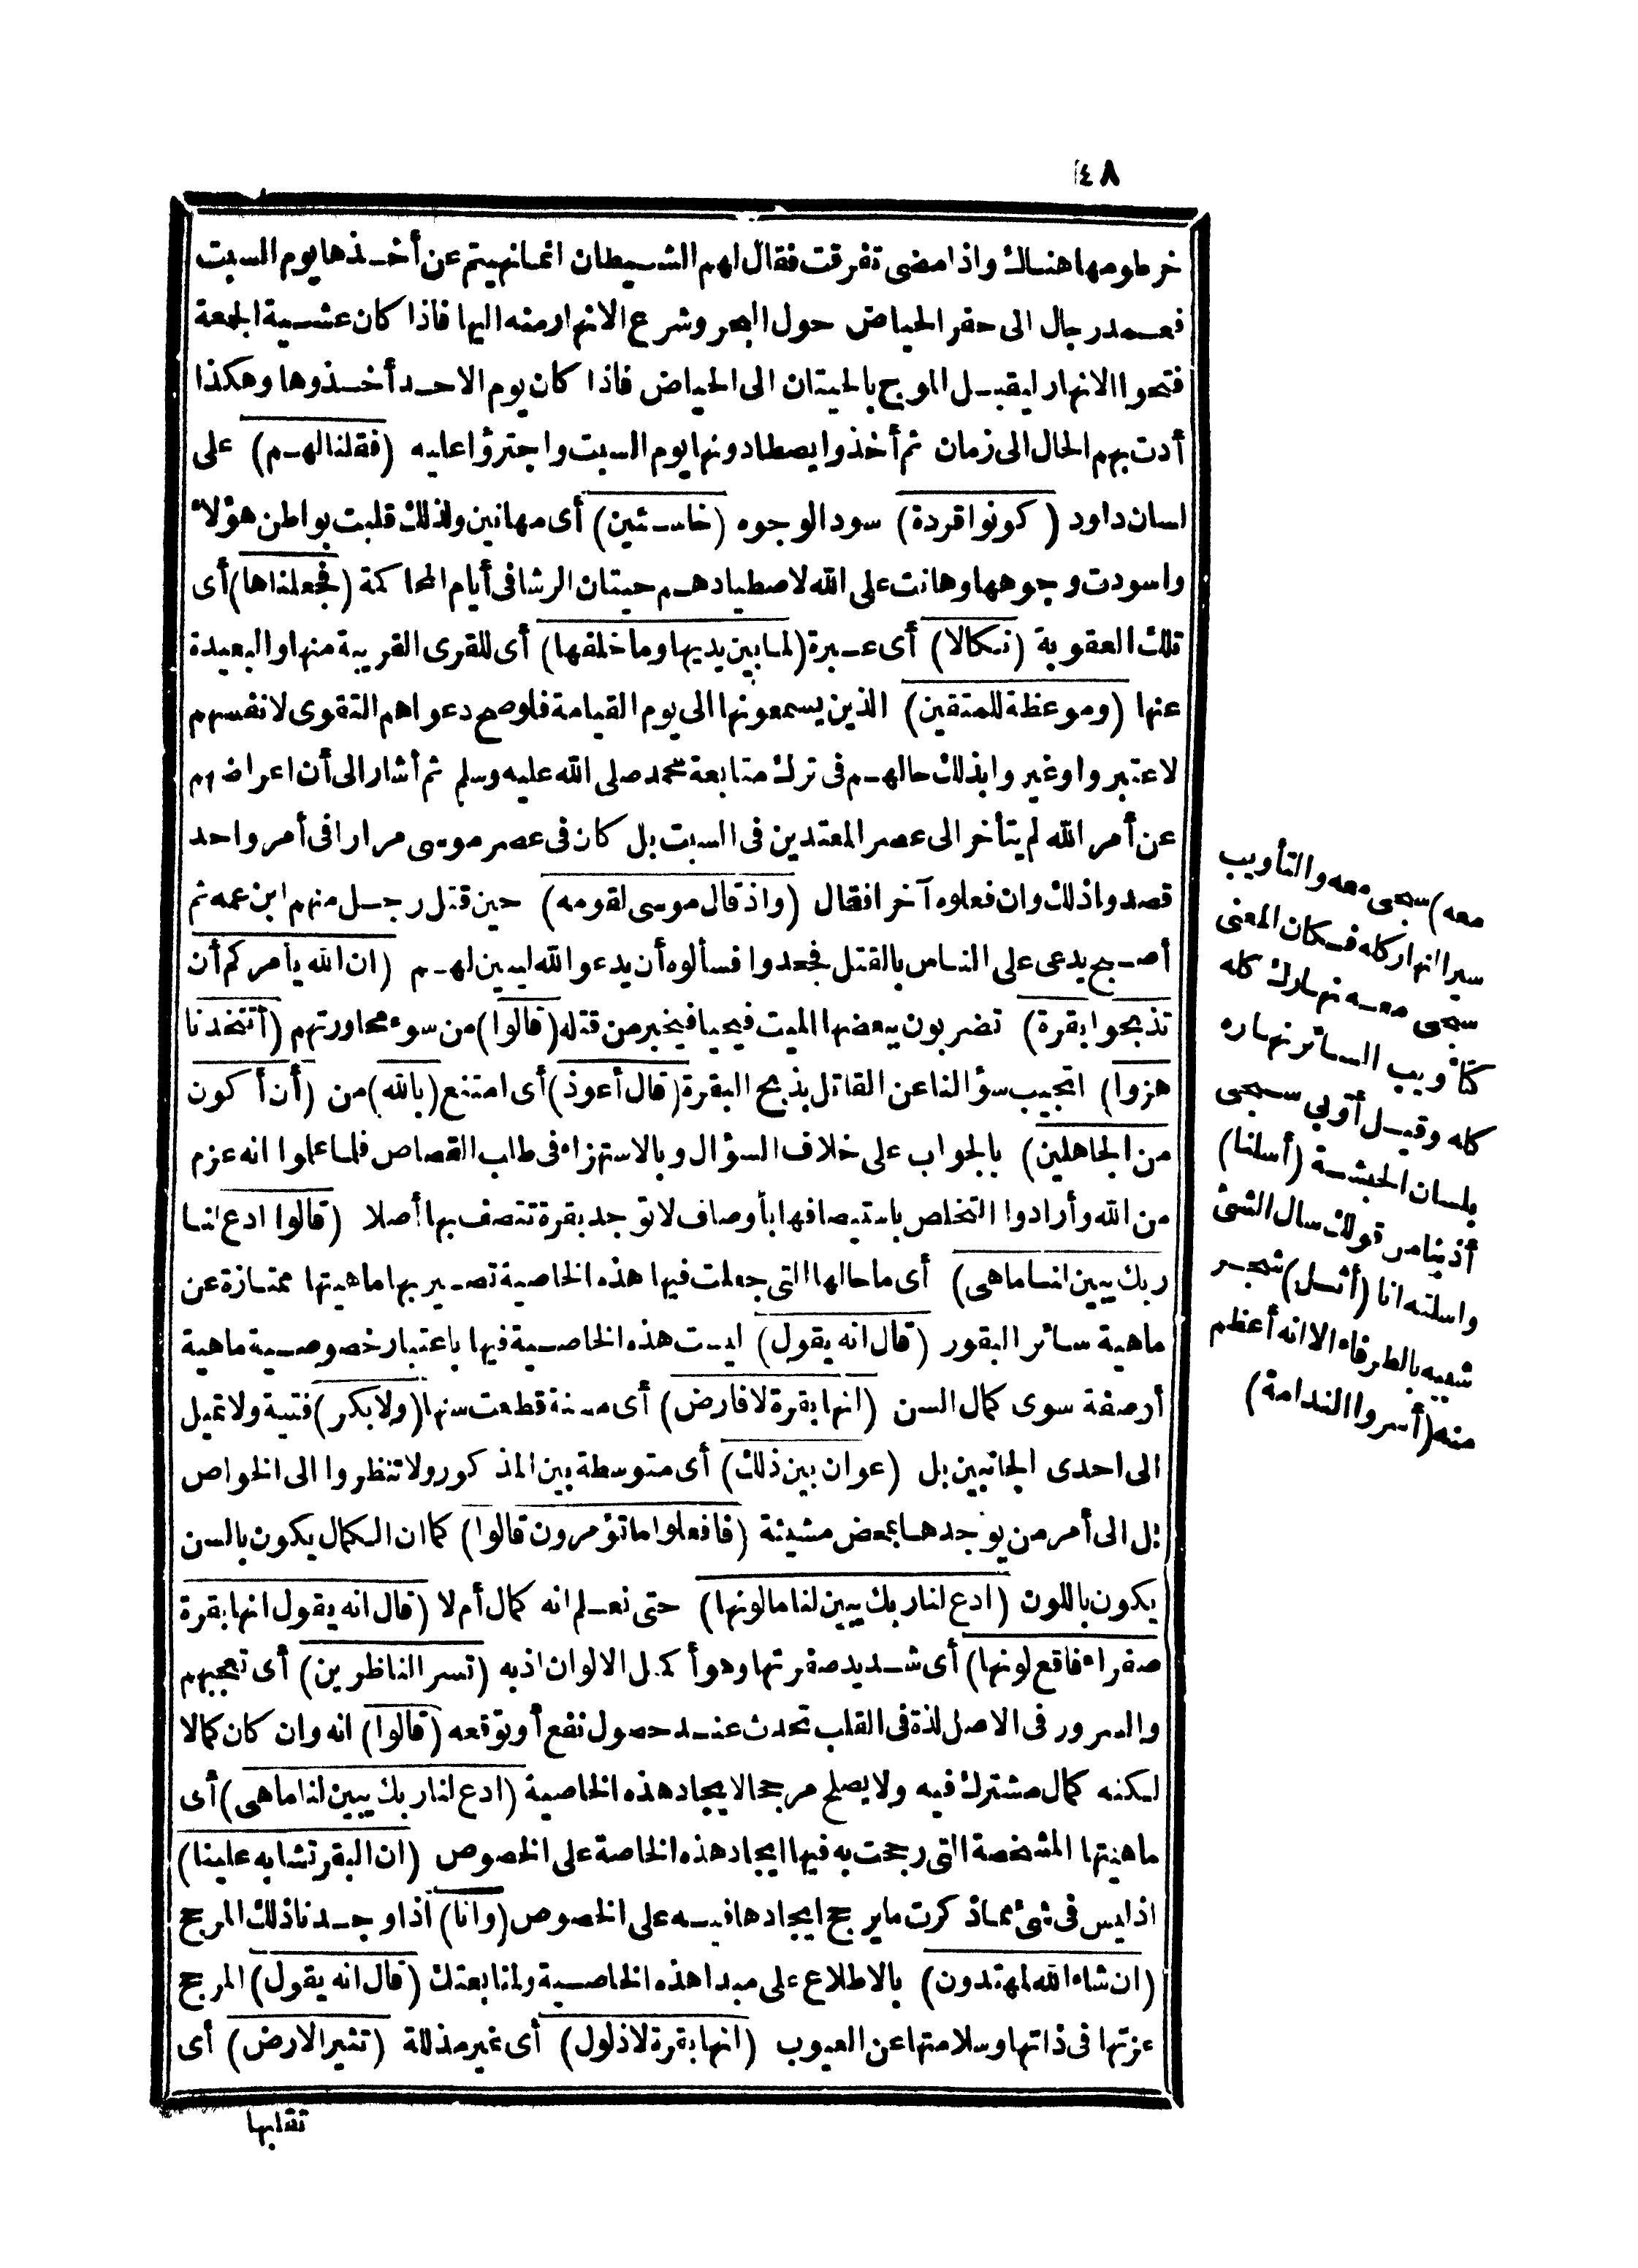 ٤٨
خرطومها هناك واذا مضى تفرقت فقال لهم الشيطان انما نهيتم عن أخذها يوم السبت
فعمد رجال الى حفر الحياض حول البحر وشرع الانهار منه اليها فاذا كان عشية الجمعة
فتحوا الانهار ليقبل الموج بالحيتان الى الحياض فاذا كان يوم الاحد أخذوها وهكذا
أدت بهم الحال الى زمان ثم أخذوا يصطادونها يوم السبت واجترؤا عليه (فقلنا لهم) على
لسان داود (كونوا قردة) سود الوجوه (خاسئين) أى مهانين ولذلك قلبت بواطن هؤلاء
واسودت وجوهها وهانت على الله لاصطيادهم حيتان الرشا فى أيام المحاكمة (فجعلناها) أى
تلك العقوبة (نكالا) أى عبرة (لما بين يديها وما خلفها) أى للقرى القريبة منها والبعيدة
عنها (وموعظة للمتقين) الذين يسمعونها الى يوم القيامة فلو صح دعواهم التقوى لانفسهم
لاعتبروا وغيروا بذلك حالهم فى ترك متابعة محمد صلى الله عليه وسلم ثم أشار الى أن اعراضهم
عن أمر الله لم يتأخر الى عصر المعتدين فى السبت بل كان فى عصر موسى مرارا فى أمر واحد
قصدوا ذلك وان فعلوه آخرا فقال (واذ قال موسى لقومه) حين قتل رجل منهم ابن عمه ثم
أصبح يدعى على الناس بالقتل فجحدوا فسألوه أن يدعو الله ليبين لهم (ان الله يأمركم أن
تذبحوا بقرة) تضربون ببعضها الميت فيحيا فيخبر من قتله (قالوا) من سوء محاورتهم (أتتخذنا
هزوا) اتجيب سؤالنا عن القاتل بذبح البقرة (قال أعوذ) أى امتنع (بالله) من (أن أكون
من الجاهلين) بالجواب على خلاف السؤال وبالاستهزاء فى طلب القصاص فلما علموا انه عزم
من الله وأرادوا التخلص باستيصافها بأوصاف لا توجد بقرة تتصف بها أصلا (قالوا ادع لنا
ربك يبين لنا ما هى) أى ما حالها التى جعلت فيها هذه الخاصية تصير بها ماهيتها ممتازة عن
ماهية سائر البقور (قال انه يقول) ليست هذه الخاصية فيها باعتبار خصوصية ماهية
أو صفة سوى كمال السن (انها بقرة لا فارض) أى مسنة قطعت سنها (ولا بكر) فتية ولا تميل
الى احدى الجانبين بل (عوان بين ذلك) أى متوسطة بين المذكور ولا تنظروا الى الخواص
بل الى أمر من يوجدها بمحض مشيئة (فافعلوا ما تؤمرون قالوا) كما ان الكمال يكون بالسن
يكون باللون (ادع لنا ربك يبين لنا ما لونها) حتى نعلم انه كمال أم لا (قال انه يقول انها بقرة
صفراء فاقع لونها) أى شديد صفرتها وهو أكمل الالوان اذ به (تسر الناظرين) أى تعجبهم
والسرور فى الاصل لذة فى القلب تحدث عند حصول نفع أو توقعه (قالوا) انه وان كان كمالا
لكنه كمال مشترك فيه ولا يصلح مرجحا لايجاد هذه الخاصية (ادع لنا ربك يبين لنا ما هى) أى
ماهيتها المشخصة التى رجحت به فيها ايجاد هذه الخاصة على الخصوص (ان البقر تشابه علينا)
اذ ليس فى شئ مما ذكرت ما يرجح ايجادها فيه على الخصوص (وانا) اذا وجدنا ذلك المرجح
(ان شاء الله لمهتدون) بالاطلاع على مبدا هذه الخاصية ولمتابعتك (قال انه يقول) المرجح
عزتها فى ذاتها وسلامتها عن العيوب (انها بقرة لا ذلول) أى غير مذللة (تثير الارض) أى
تقلبها
معه) سبحى معه والتأويب
سيرا انهار كله فكان المعنى
سبحى معه نهارك كله
كتأويب السائر نهاره
كله وقيل أوبي سبحى
بلسان الحبشة (أسلنا)
أذبنا من قولك سال الشئ
واسلته انا (أثل) شجر
شبيه بالطرفاء الا انه أعظم
منه (أسروا الندامة)